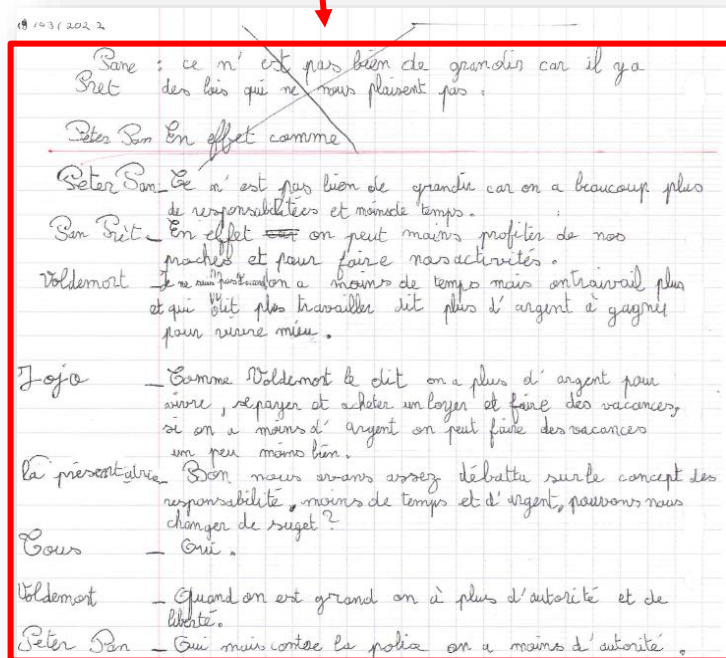 18/03/2022
Pane : ce n' est pas bien de grandir car il y a
Pret des lois qui ne nous plaisent pas.
Peter Pan En effet comme
Peter Pan _ Ce n' est pas bien de grandir car on a beaucoup plus
de responsabilitées et moinsde temps.
Pan Prèt _ En effet on peut moins profiter de nos
proches et pour faire nos activités.
Voldemort _ Je ne suis pas d'accord on a moins de temps mais on travail plus
et qui dit plus travailler dit plus d' argent à gagner
pour vivre mieu.
Jojo _ Comme Voldemort le dit on a plus d' argent pour
vivre, se payer et acheter un loyer et faire des vacances,
si on a moins d' argent on peut faire des vacances
un peu moins bien.
la présentatrice _ Bon nous avons assez débattu sur le concept des
responsabilité, moins de temps et d' argent, pouvons nous
changer de suget ?
Tous _ Oui.
Voldemort _ Quand on est grand on à plus d'autorité et de
liberté.
Peter Pan _ Oui mais contre la police on a moins d' autorité.